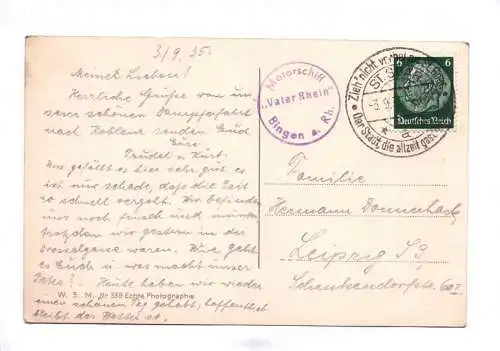 3/9. 35.
Meine Lieben!
Herzliche Grüße von un-
serer schönen Dampferfahrt
nach Koblenz senden Euch
Eure
Trudel u. Kurt.
Uns gefällt es hier sehr gut es
ist nur schade, daß die Zeit
so schnell vergeht. Wir befinden
uns noch frisch und munter
trotzdem wir gestern in der
Drosselgasse waren. Wie geht
es Euch u. was macht unser
Heute haben wir wieder
einen schönen Tag gehabt, hoffentlich
bleibt das Wetter so.
W. S. M. Nr 338 Echte Photographie
Motorschiff
"Vater Rhein"
Bingen a. Rh.
Zieht nicht
Der Stadt, die allzeit
-3.9.
6 6
Deutsches Reich
Familie
Hermann Donnerhack,
Leipzig S3,
Scheukendorfstr. 60 I